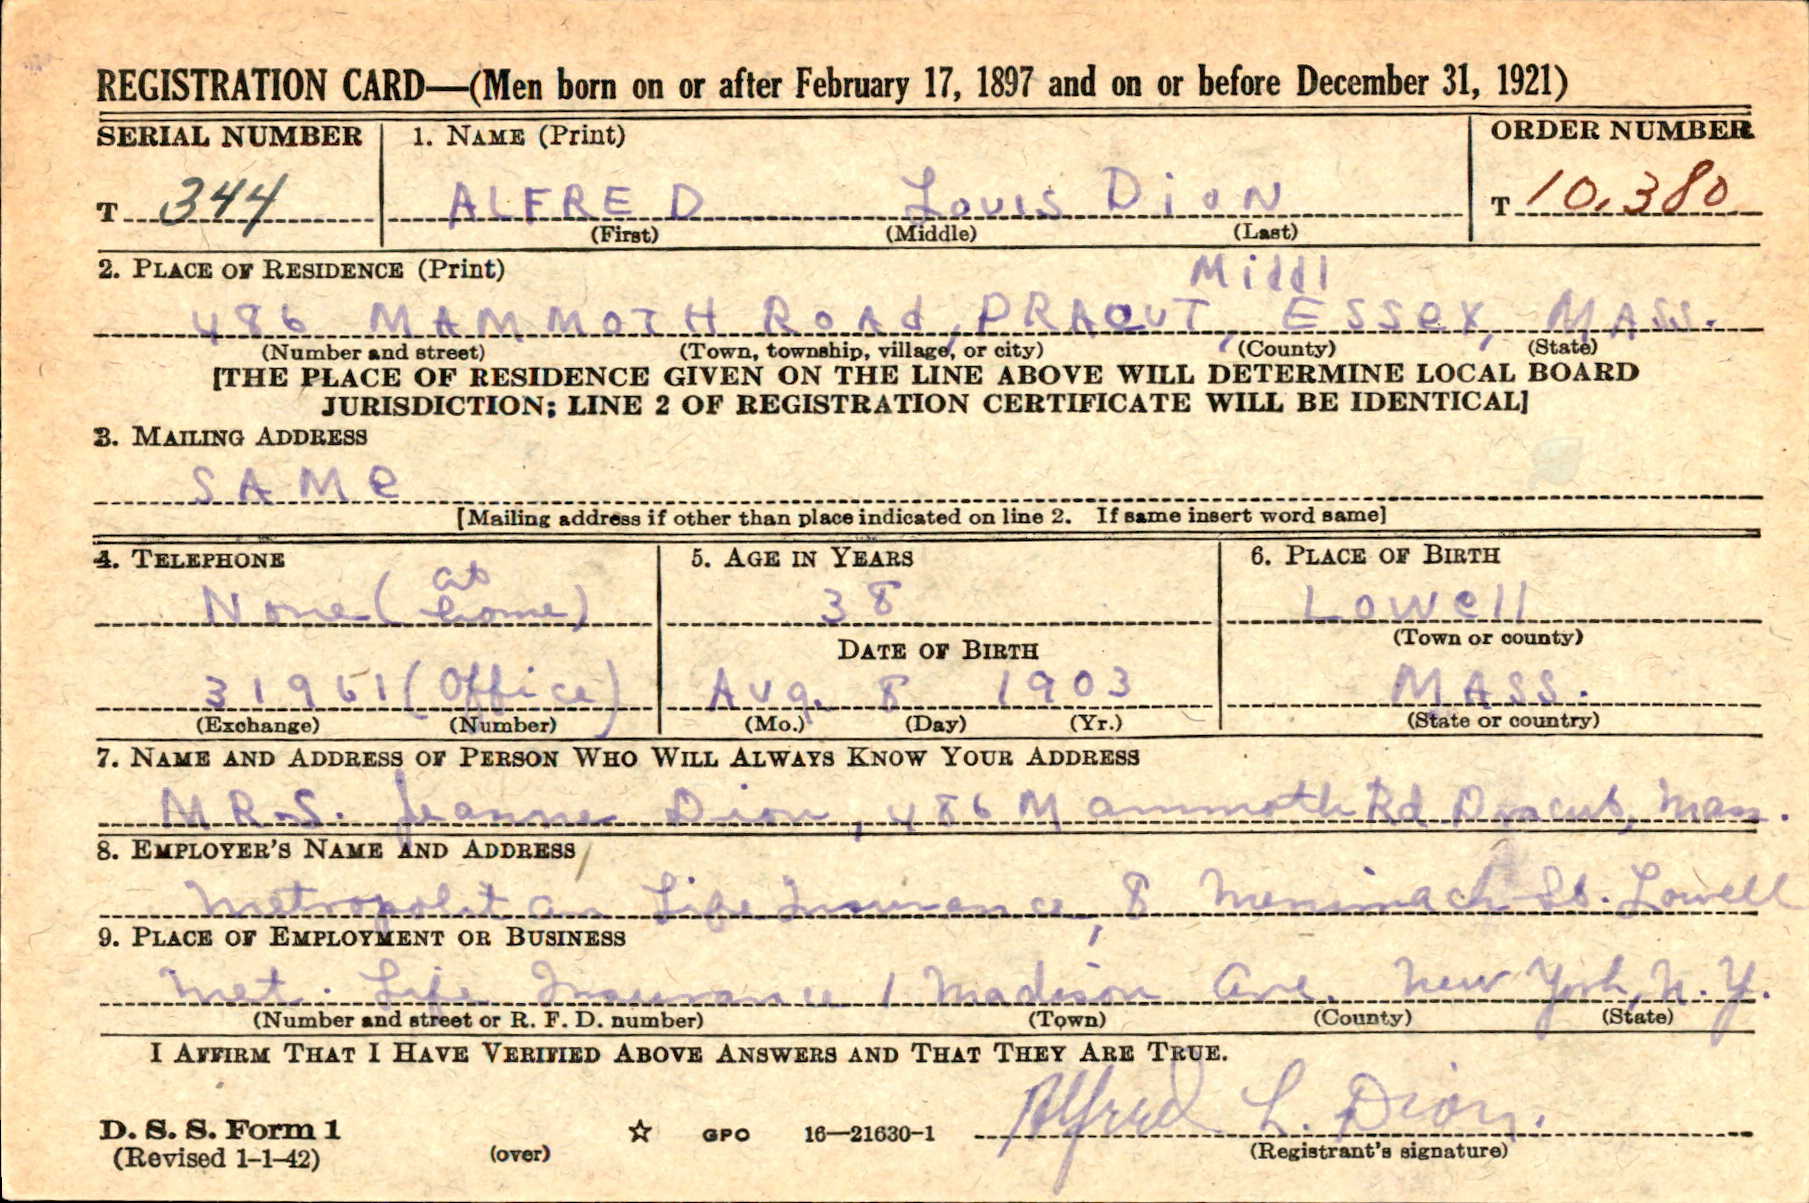 REGISTRATION CARD—(Men born on or after February 17, 1897 and on or before December 31, 1921)
SERIAL NUMBER 1. NAME (Print) ORDER NUMBER
T 344 ALFRED Louis DioN T 10,380
(First) (Middle) (Last)
2. PLACE OF RESIDENCE (Print) Middl
486 MAMMOTH RoAd, DRACUT, ESSex, MASS.
(Number and street) (Town, township, village, or city) (County) (State)
[THE PLACE OF RESIDENCE GIVEN ON THE LINE ABOVE WILL DETERMINE LOCAL BOARD
JURISDICTION; LINE 2 OF REGISTRATION CERTIFICATE WILL BE IDENTICAL]
3. MAILING ADDRESS
SAMe
[Mailing address if other than place indicated on line 2. If same insert word same]
4. TELEPHONE 5. AGE IN YEARS 6. PLACE OF BIRTH
None (at home) 38 Lowell
(Town or county)
DATE OF BIRTH
31961 (Office) Aug. 8 1903 MASS.
(Exchange) (Number) (Mo.) (Day) (Yr.) (State or country)
7. NAME AND ADDRESS OF PERSON WHO WILL ALWAYS KNOW YOUR ADDRESS
MRS. Jeanne Dion, 486 Mammoth Rd Dracut, Mass.
8. EMPLOYER'S NAME AND ADDRESS
Metropolitan Life Insurance, 8 Merrimack St. Lowell
9. PLACE OF EMPLOYMENT OR BUSINESS
Met. Life Insurance 1 Madison Ave. New York, N.Y.
(Number and street or R. F. D. number) (Town) (County) (State)
I AFFIRM THAT I HAVE VERIFIED ABOVE ANSWERS AND THAT THEY ARE TRUE.
Alfred L. Dion.
D. S. S. Form 1 GPO 16—21630-1
(Revised 1-1-42) (over) (Registrant's signature)